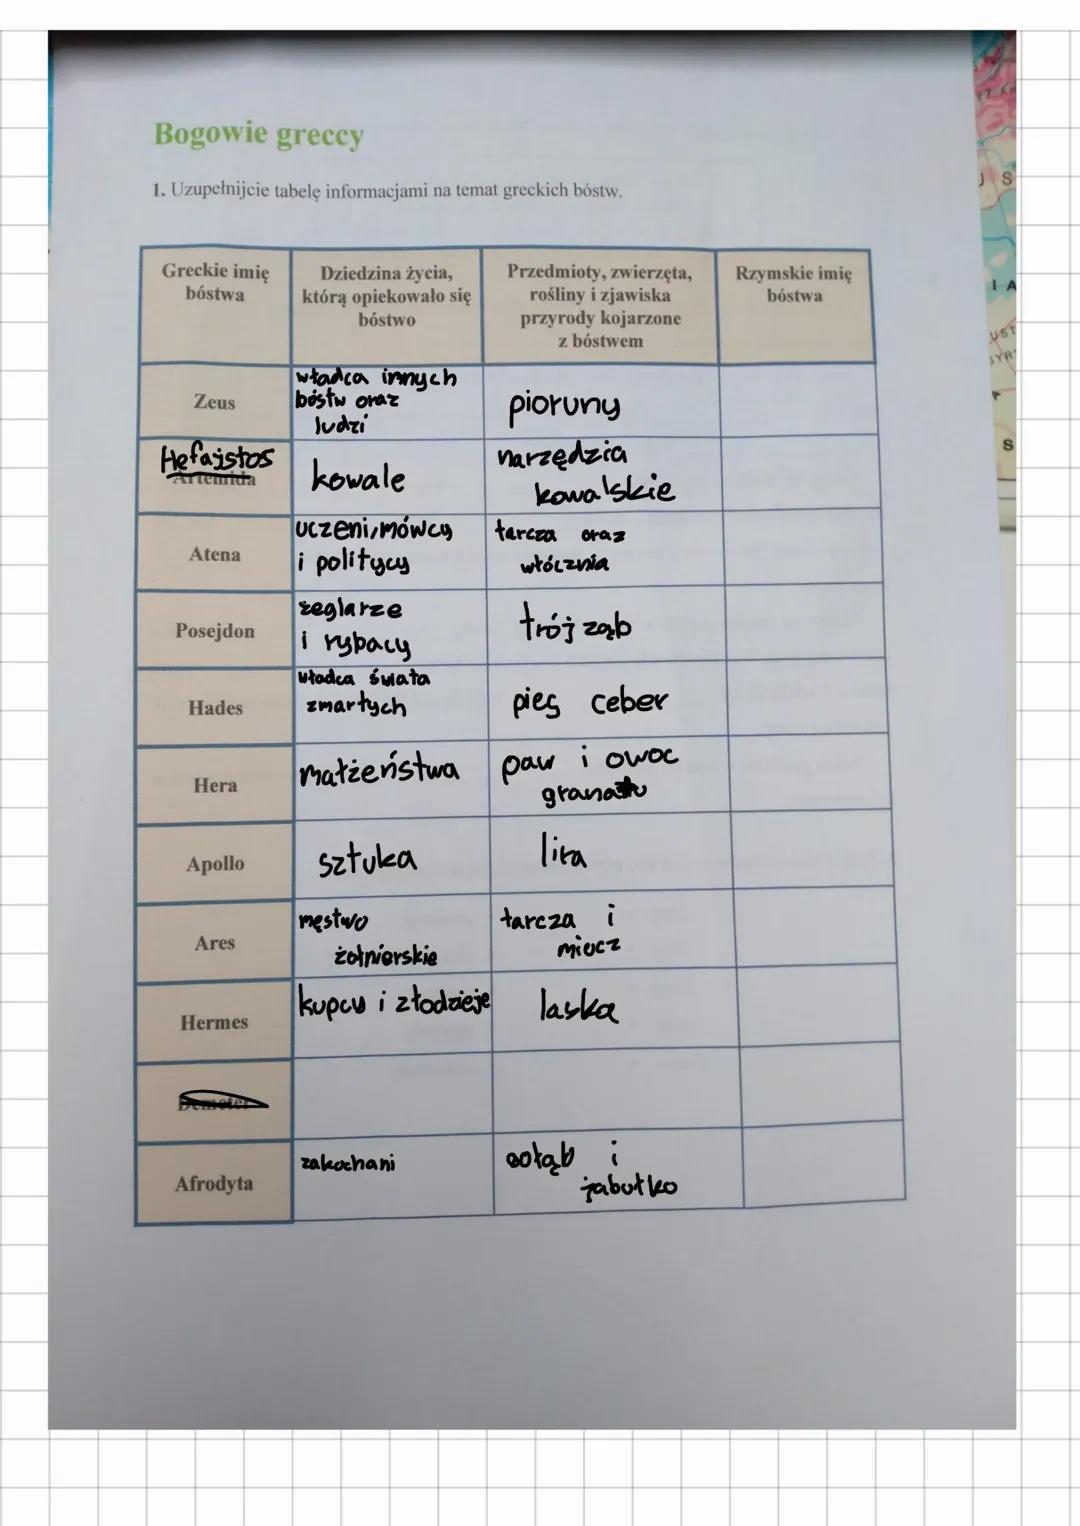 Bogowie greccy
1. Uzupełnijcie tabelę informacjami na temat greckich bóstw.
Greckie imię
bóstwa
Dziedzina życia,
którą opiekowało się
bóstwo
Przedmioty, zwierzęta,
rośliny i zjawiska
przyrody kojarzone
z bóstwem
Rzymskie imię
bóstwa
Zeus
władca innych
bóstw oraz
ludzi
pioruny
Hefajstos
Artemida
kowale
narzędzia
kowalskie
Atena
uczeni, mówcy
i politycy
tarcza oraz
włócznia
Posejdon
żeglarze
i rybacy
trójząb
Hades
władca świata
zmarłych
pies ceber
Hera
małżeństwa
paw i owoc
granatu
Apollo
sztuka
lira
Ares
męstwo
żołnierskie
tarcza i
miecz
Hermes
kupcy i złodzieje
laska
Demeter
Afrodyta
zakochani
gołąb i
jabułko